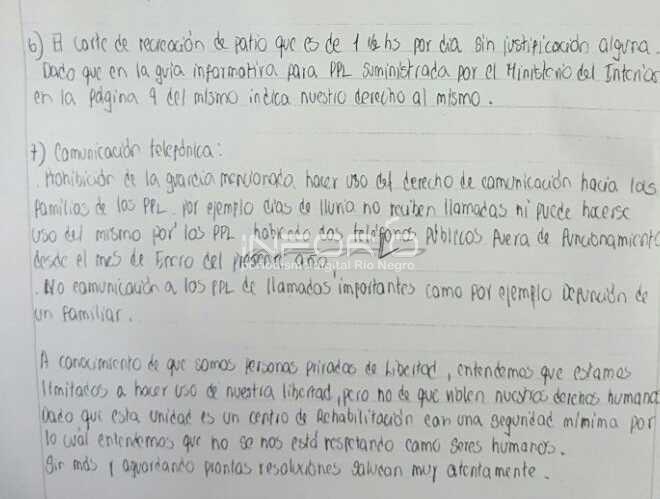 6) El corte de recreación de patio que es de 1 1/2 hs por dia sin justificación alguna.
Dado que en la guia informativa para PPL suministrada por el Ministerio del Interior
en la página 9 del mismo indica nuestro derecho al mismo.
7) Comunicación telefónica:
. Prohibición de la guardia mencionada hacer uso del derecho de comunicación hacia las
familias de los PPL. por ejemplo dias de lluvia no reciben llamadas ni puede hacerse
uso del mismo por los PPL habiendo dos telefonos Públicos fuera de funcionamiento
desde el mes de Enero del presente año.
INFORO
Periodismo Digital Rio Negro
. No comunicación a los PPL de llamadas importantes como por ejemplo Defunción de
un familiar.
A conocimiento de que somos personas privadas de Libertad, entendemos que estamos
limitados a hacer uso de nuestra libertad, pero no de que violen nuestros derechos humano
Dado que esta unidad es un centro de Rehabilitación con una seguridad minima por
lo cuál entendemos que no se nos está respetando como seres humanos.
Sin más y aguardando prontas resoluciones saludan muy atentamente.